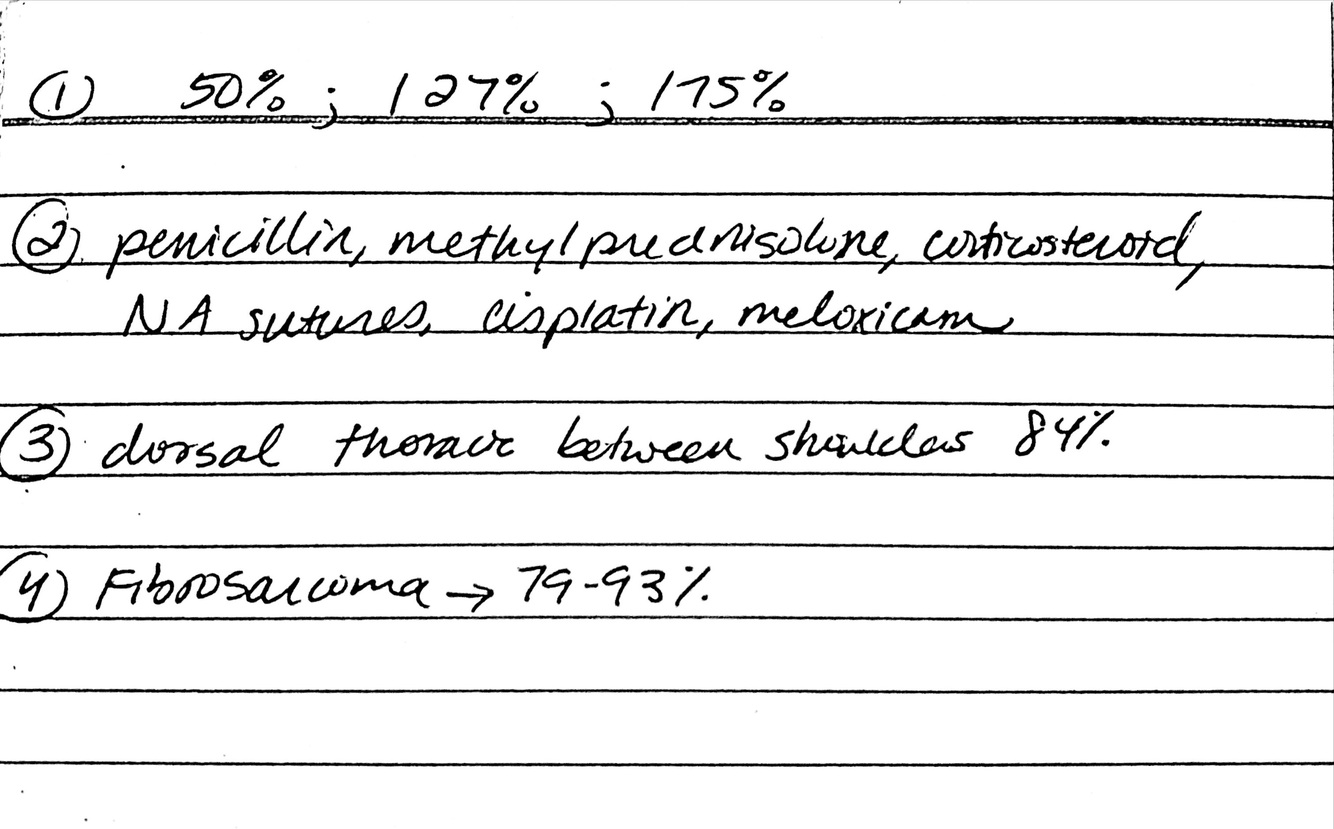 ① 50% ; 127% ; 175%
② penicillin, methylprednisolone, corticosteroid,
NA sutures, cisplatin, meloxicam
③ dorsal thoracic between shoulders 84%.
④ Fibrosarcoma → 79-93%.